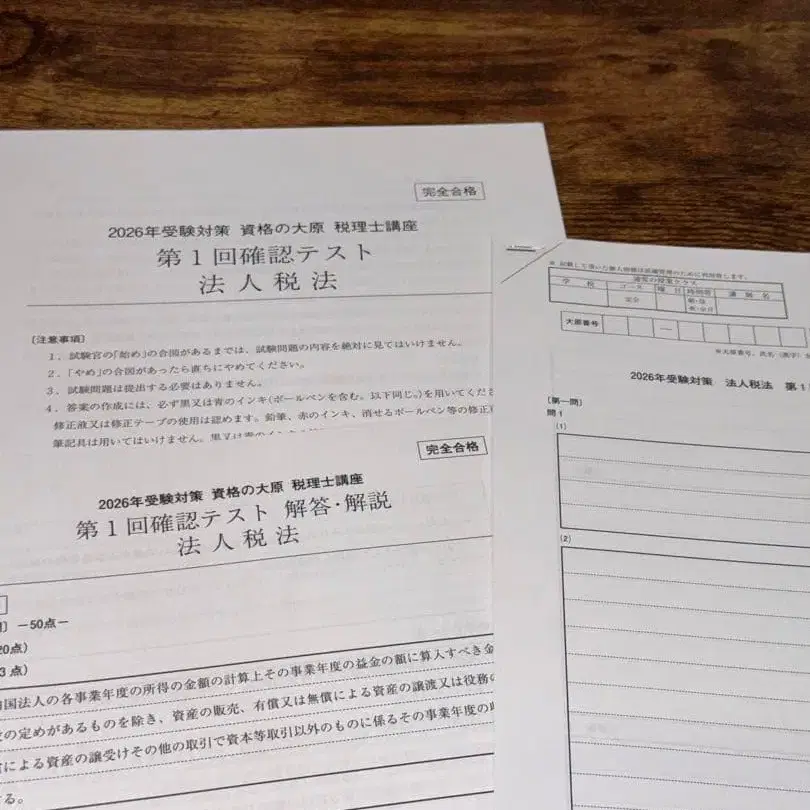 完全合格
2026年受験対策 資格の大原 税理士講座
第1回確認テスト
法人税法
〔注意事項〕
1．試験官の「始め」の合図があるまでは、試験問題の内容を絶対に見てはいけません。
2．「やめ」の合図があったら直ちにやめてください。
3．試験問題は提出する必要はありません。
4．答案の作成には、必ず黒又は青のインキ(ボールペンを含む。以下同じ。)を用いてくだ
修正液又は修正テープの使用は認めます。鉛筆、赤のインキ、消せるボールペン等の修正
筆記具は用いてはいけません。黒又は青のインキ
完全合格
2026年受験対策 資格の大原 税理士講座
第1回確認テスト 解答・解説
法人税法
－50点－
20点）
3点）
国法人の各事業年度の所得の金額の計算上その事業年度の益金の額に算入すべき金
の定めがあるものを除き、資産の販売、有償又は無償による資産の譲渡又は役務の
による資産の譲受けその他の取引で資本等取引以外のものに係るその事業年度の
する。
※ 記載して頂いた個人情報は成績管理のために利用致します。
通常の授業クラス
学 校 コース 曜日 時間帯 講師名
完全
大原番号 －
2026年受験対策 法人税法 第1
〔第一問〕
問1
(1)
(2)